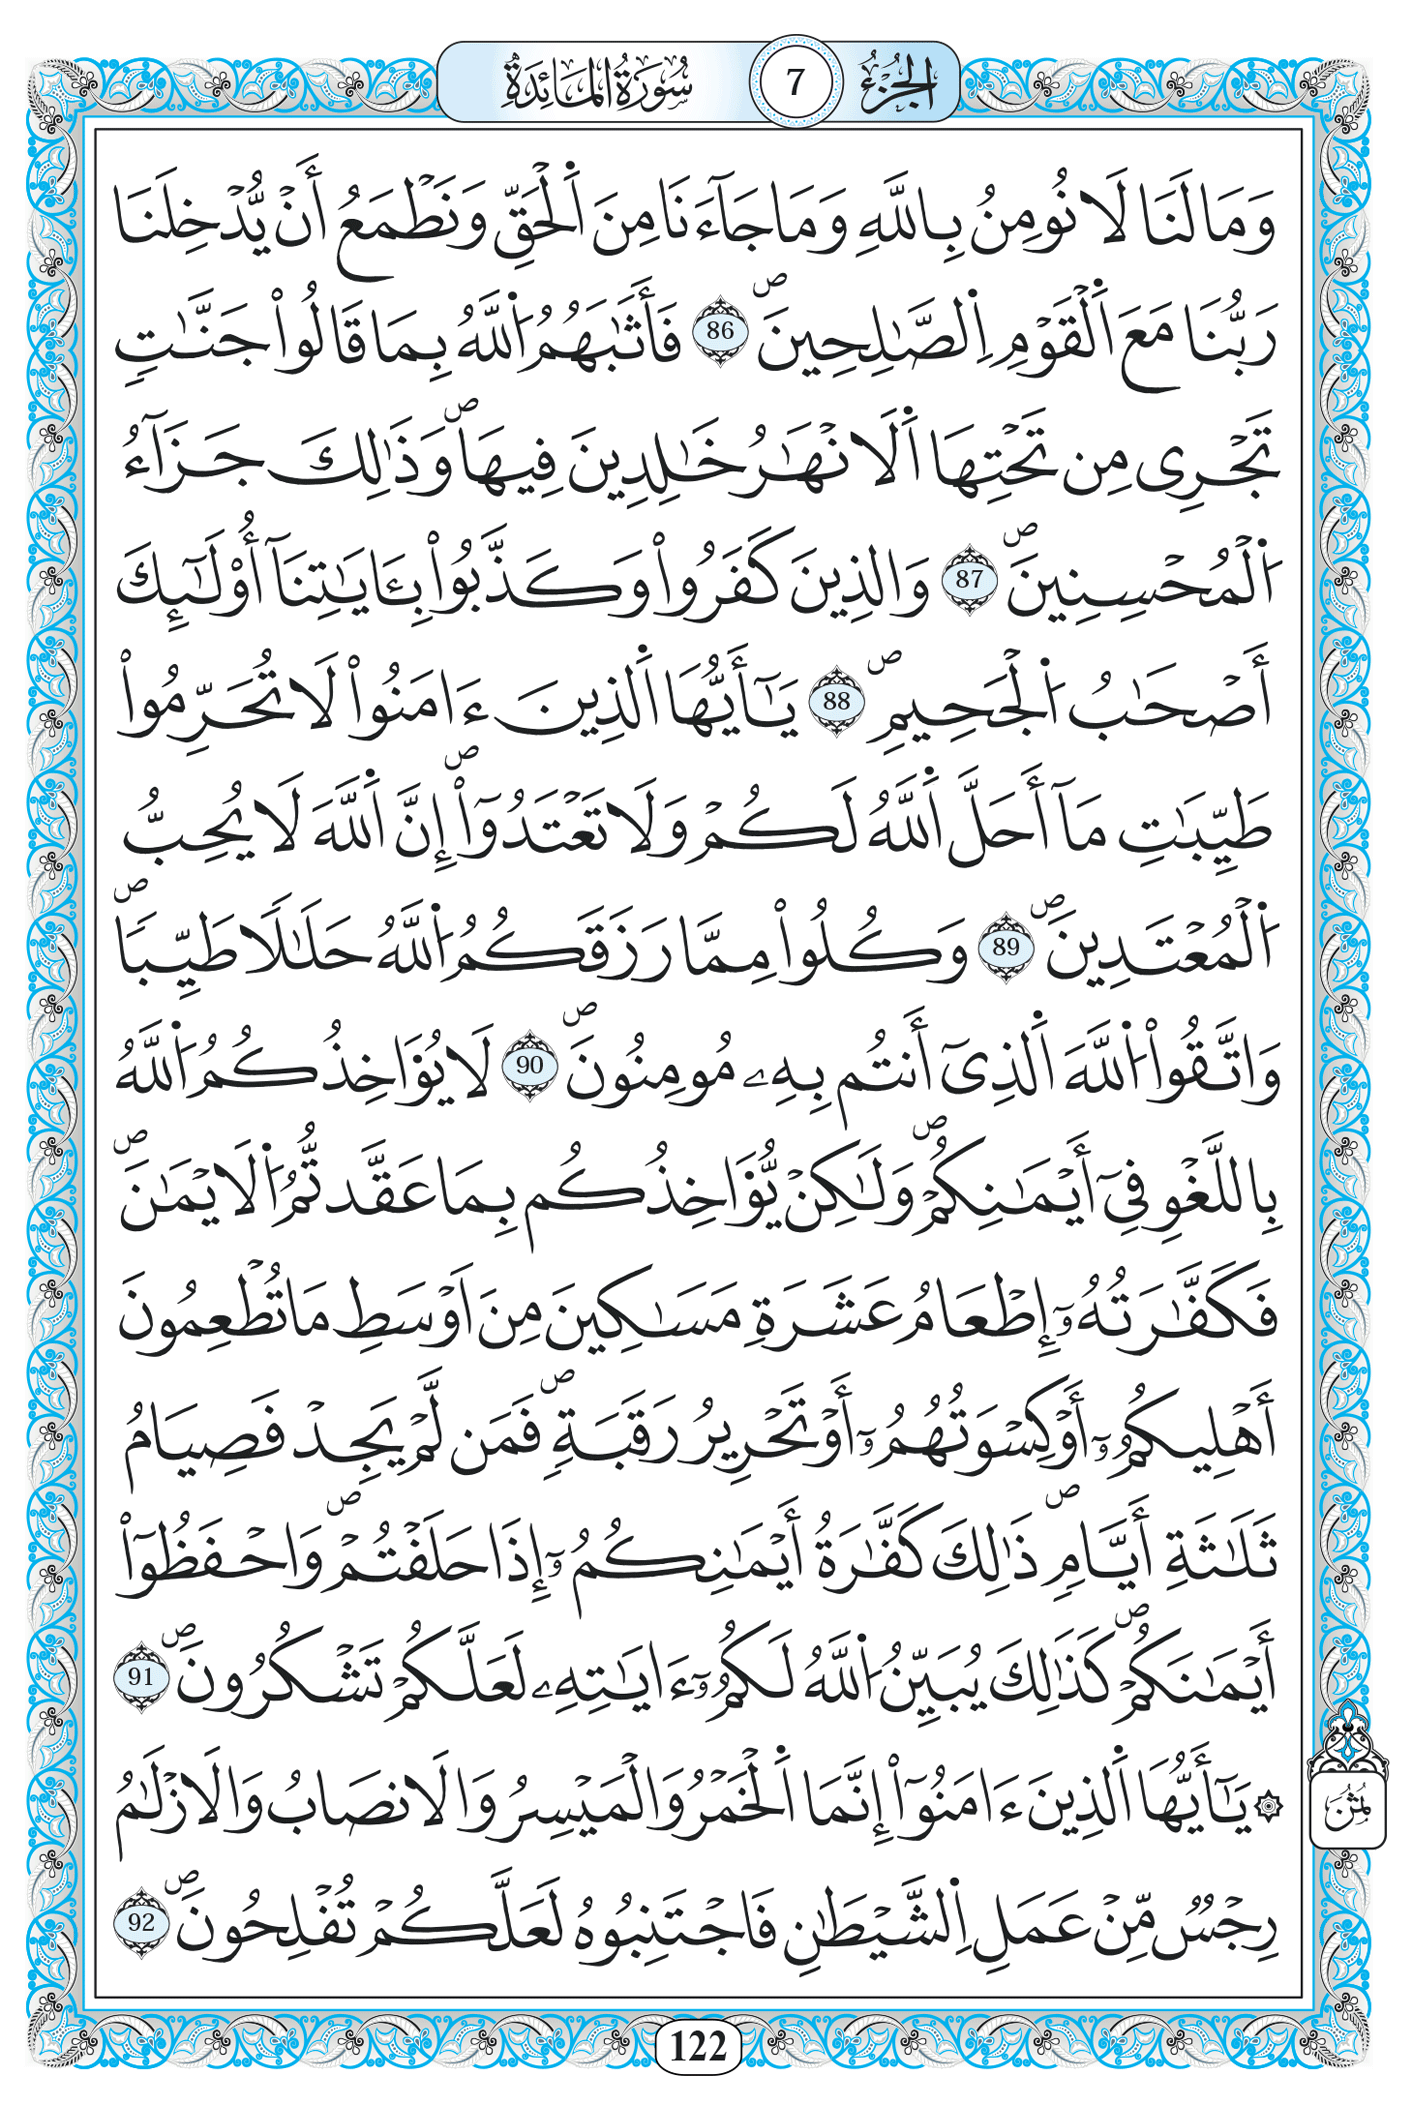 سُورَةُ الْمَائِدَةِ 7 الجُزْءُ
وَمَا لَنَا لَا نُومِنُ بِاللَّهِ وَمَا جَآءَنَا مِنَ اَ۬لْحَقِّ وَنَطْمَعُ أَنْ يُّدْخِلَنَا
رَبُّنَا مَعَ اَ۬لْقَوْمِ اِ۬لصَّٰلِحِينَۖ 86 فَأَثَٰبَهُمُ اُ۬للَّهُ بِمَا قَالُواْ جَنَّٰتٖ
تَجْرِي مِن تَحْتِهَا اَ۬لَانْهَٰرُ خَٰلِدِينَ فِيهَاۖ وَذَٰلِكَ جَزَآءُ
اُ۬لْمُحْسِنِينَۖ 87 وَالذِينَ كَفَرُواْ وَكَذَّبُواْ بِـَٔايَٰتِنَآ أُوْلَٰٓئِكَ
أَصْحَٰبُ اُ۬لْجَحِيمِۖ 88 يَٰٓأَيُّهَا اَ۬لذِينَ ءَامَنُواْ لَا تُحَرِّمُواْ
طَيِّبَٰتِ مَآ أَحَلَّ اَ۬للَّهُ لَكُمْ وَلَا تَعْتَدُوٓاْۖ إِنَّ اَ۬للَّهَ لَا يُحِبُّ
اُ۬لْمُعْتَدِينَۖ 89 وَكُلُواْ مِمَّا رَزَقَكُمُ اُ۬للَّهُ حَلَٰلاٗ طَيِّباٗۖ
وَاتَّقُواْ اُ۬للَّهَ اَ۬لذِيٓ أَنتُم بِهِۦ مُومِنُونَۖ 90 لَا يُؤَاخِذُكُمُ اُ۬للَّهُ
بِاللَّغْوِ فِيٓ أَيْمَٰنِكُمْۖ وَلَٰكِنْ يُّؤَاخِذُكُم بِمَا عَقَّدتُّمُ اُ۬لَايْمَٰنَۖ
فَكَفَّٰرَتُهُۥٓ إِطْعَامُ عَشَرَةِ مَسَٰكِينَ مِنَ اَوْسَطِ مَا تُطْعِمُونَ
أَهْلِيكُمُۥٓ أَوْ كِسْوَتُهُمُۥٓ أَوْ تَحْرِيرُ رَقَبَةٖۖ فَمَن لَّمْ يَجِدْ فَصِيَامُ
ثَلَٰثَةِ أَيَّامٖۖ ذَٰلِكَ كَفَّٰرَةُ أَيْمَٰنِكُمُۥٓ إِذَا حَلَفْتُمْۖ وَاحْفَظُوٓاْ
أَيْمَٰنَكُمْۖ كَذَٰلِكَ يُبَيِّنُ اُ۬للَّهُ لَكُمُۥٓ ءَايَٰتِهِۦ لَعَلَّكُمْ تَشْكُرُونَۖ 91
۞ يَٰٓأَيُّهَا اَ۬لذِينَ ءَامَنُوٓاْ إِنَّمَا اَ۬لْخَمْرُ وَالْمَيْسِرُ وَالَانصَابُ وَالَازْلَٰمُ
ثُمُن
رِجْسٞ مِّنْ عَمَلِ اِ۬لشَّيْطَٰنِ فَاجْتَنِبُوهُ لَعَلَّكُمْ تُفْلِحُونَۖ 92
122